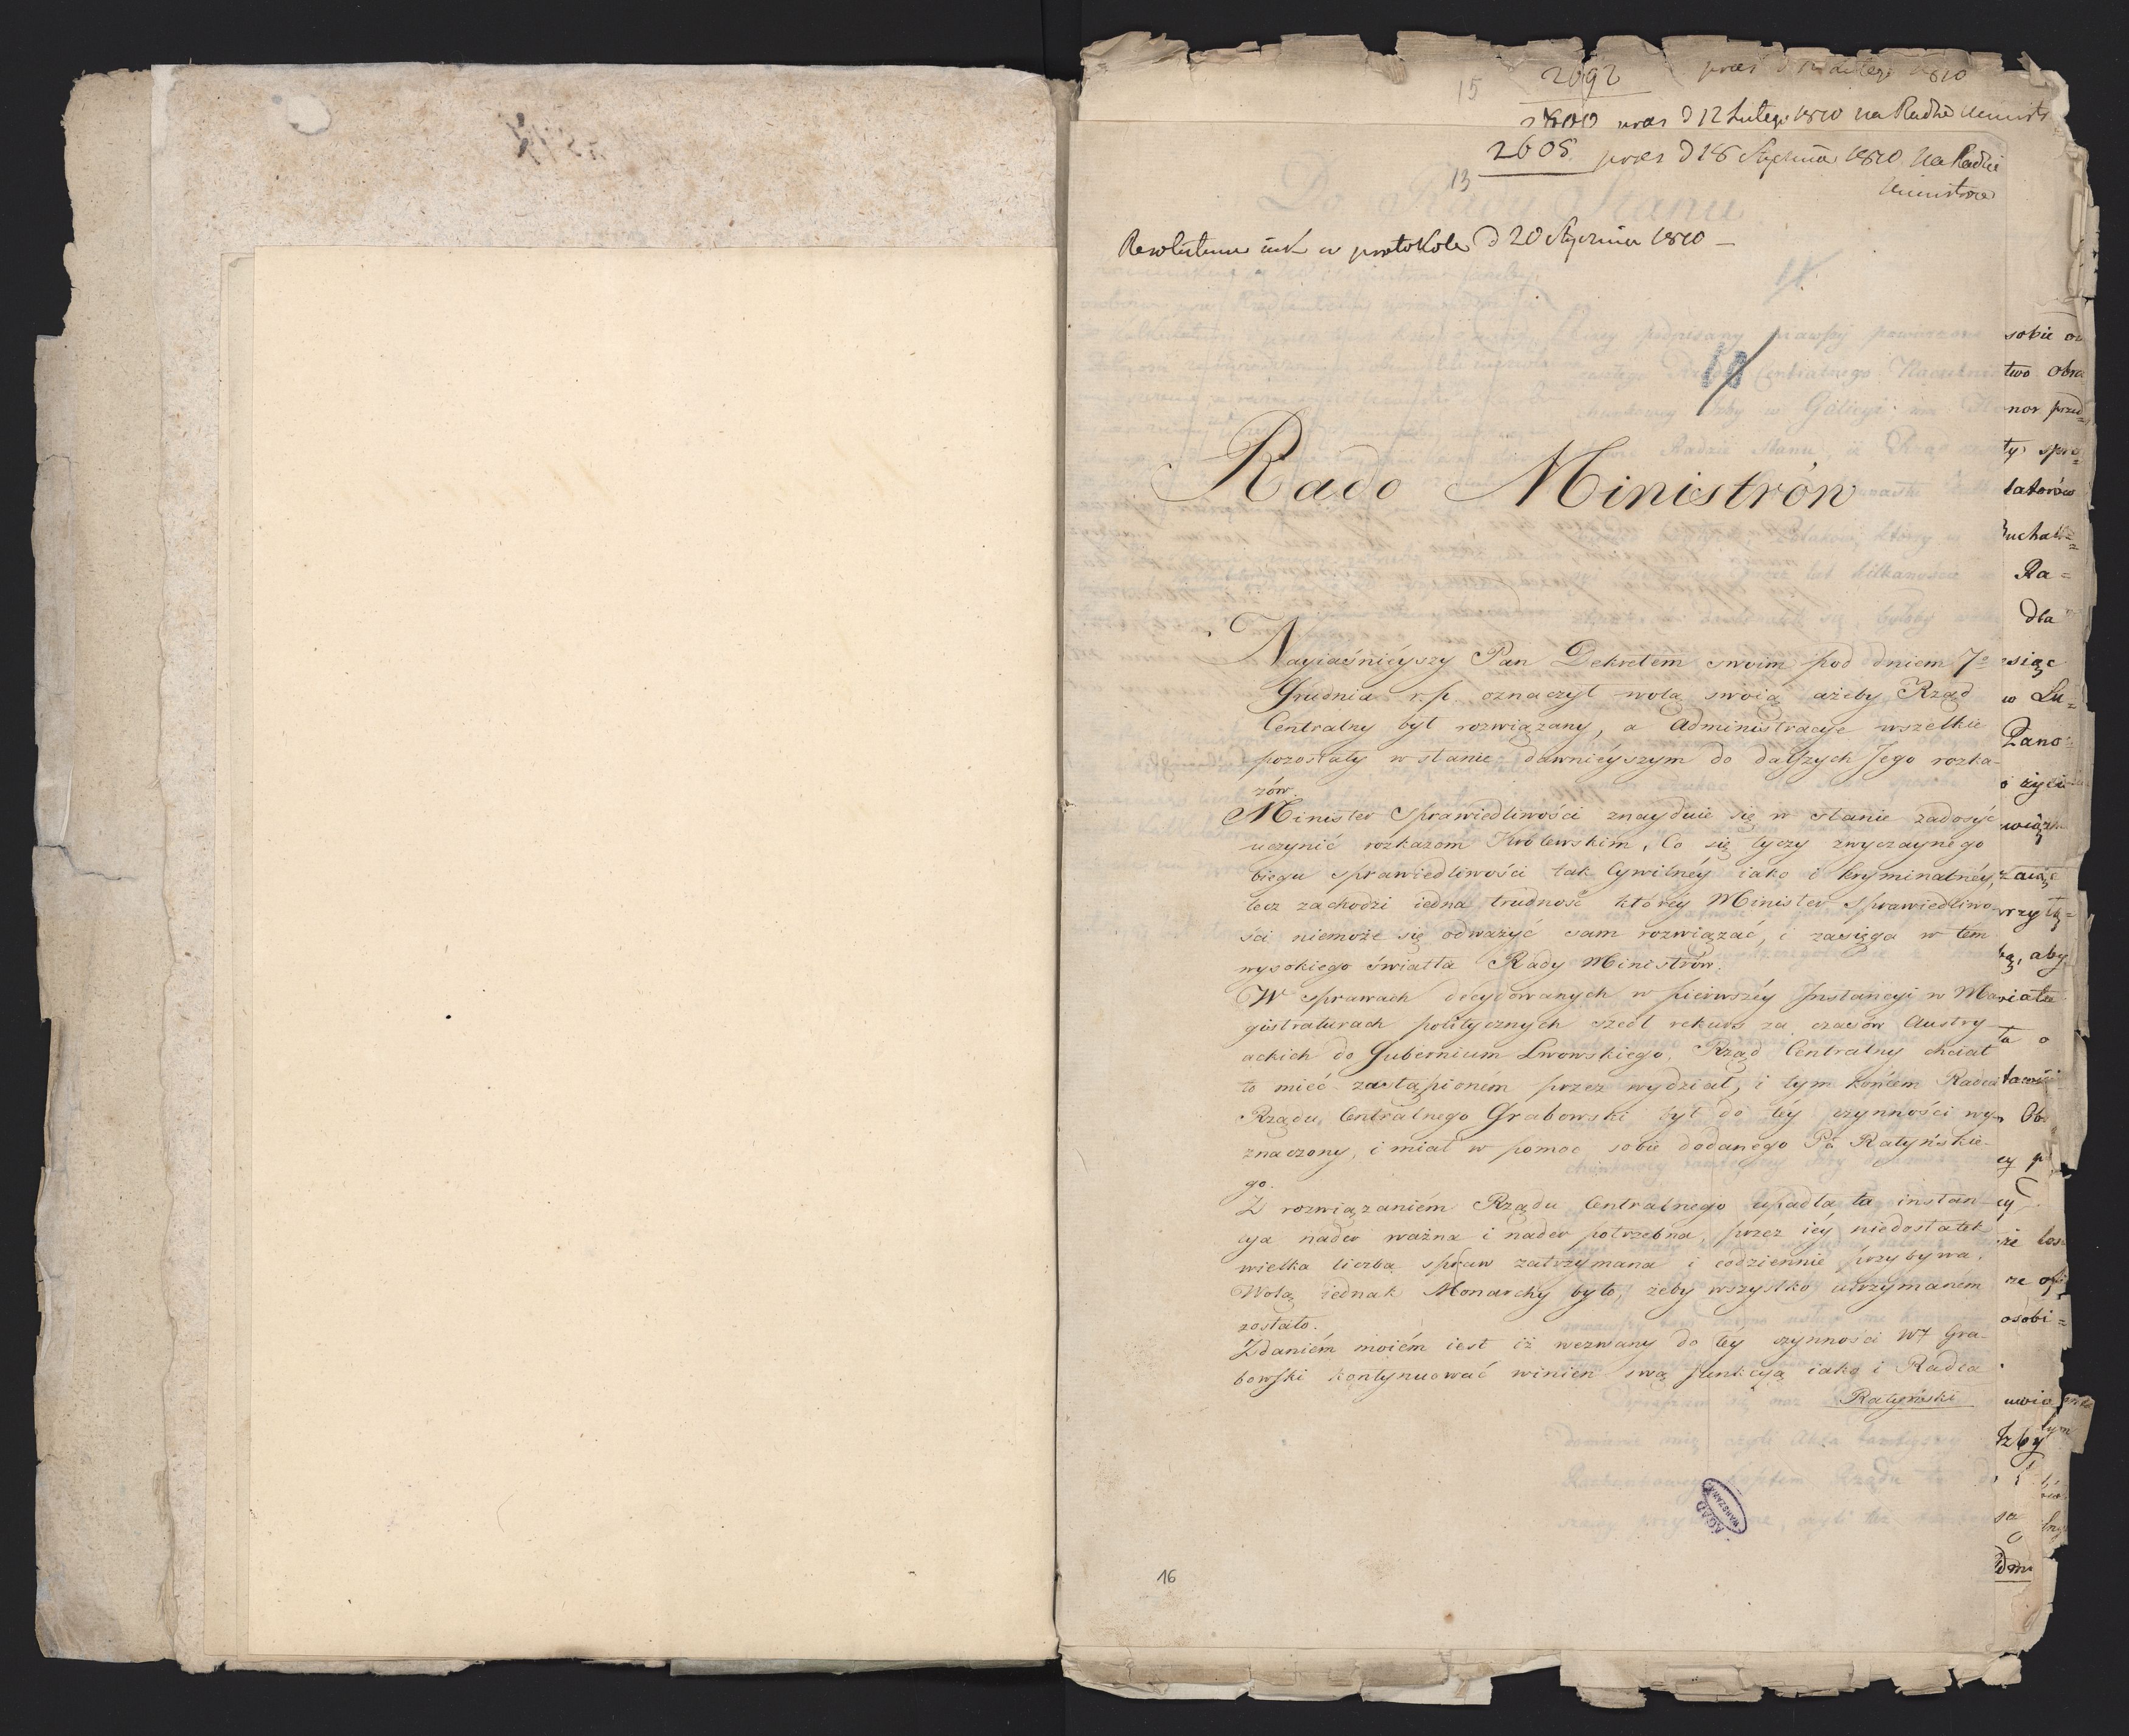 15
2092
praes d 12 Lutego 1810
d 12 Lutego 1810 na Radzie Ministr
2608 praes d 18 Stycznia 1810 na Radzie
Ministrów
13
w protokole d 20 Stycznia 1810 —
18
Rado Ministrów
Nayiaśnieyszy Pan Dekretem swoim pod dniem 7º
Grudnia r. p. oznaczył wolą swoią ażeby Rząd
Centralny był rozwiązany, a Administracye wszelkie
pozostały w stanie dawnieyszym do dalszych Jego rozka-
zów.
Minister Sprawiedliwości znayduie się w stanie zadosyć
uczynić rozkazom Królewskim, Co się tyczy zwyczaynego
biegu sprawiedliwości tak Cywilnéy iako i kryminalnéy,
lecz zachodzi iedna trudność któréy Minister Sprawiedliwo-
ści niemoże się odważyć sam rozwiązać, i zasięga w tem
wysokiego światła Rady Ministrów.
W sprawach decydowanych w pierwszéy Instancyi w Ma-
gistraturach politycznych szedł rekurs za czasów Austry-
ackich do Gubernium Lwowskiego. Rząd Centralny chciał
to mieć zastąpioném przez wydział, i tym końcem Radca
Rządu Centralnego Grabowski był do téy czynności wy-
znaczony, i miał w pomoc sobie dodanego Pa Ratyńskie-
go.
Z rozwiązaniém Rządu Centralnego upadła ta instan-
cya nader ważna i nader potrzebna, przez iéy niedostatek
wielka liczba spraw zatrzymana i codziennie przybywa.
Wolą iednak Monarchy było, żeby wszystko utrzymaném
zostało.
Zdaniém moiém iest iż wezwany do téy czynności WJ Gra-
bowski kontynuować winien swą funkcyą iako i Radca
Ratyński
16
AGAD
WARSZAWA
sobie
two
nor
ty
latorów
Ra=
dla
esiąc
w Lu=
Pano=
o życiu
aby
ta o
osobi=